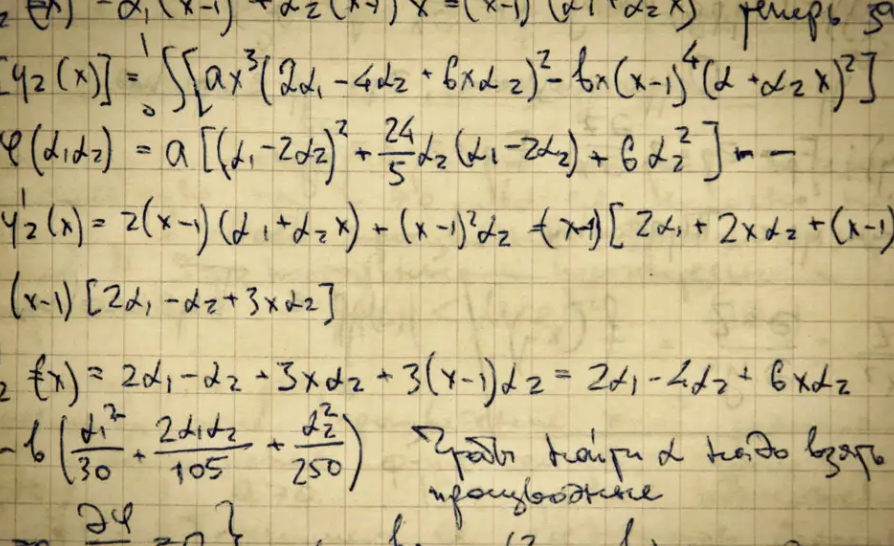 (x) = α₁(x-1)² + α₂(x-1)²x = (x-1)²(α₁+α₂x) теперь
[y₂(x)] = ∫₀¹ ∫[ax³(2α₁ - 4α₂ + 6xα₂)² - bx(x-1)⁴(α + α₂x)²]
φ(α₁α₂) = a[(α₁-2α₂)² + 24/5 α₂(α₁-2α₂) + 6α₂²] - -
y₂'(x) = 2(x-1)(α₁+α₂x) + (x-1)²α₂ = (x-1)[2α₁ + 2xα₂ + (x-1)
(x-1)[2α₁ - α₂ + 3xα₂]
₂ (x) = 2α₁ - α₂ + 3xα₂ + 3(x-1)α₂ = 2α₁ - 4α₂ + 6xα₂
-b(α₁²/30 + 2α₁α₂/105 + α₂²/250) Чтобы найти α надо взять
производные
∂φ = 0}